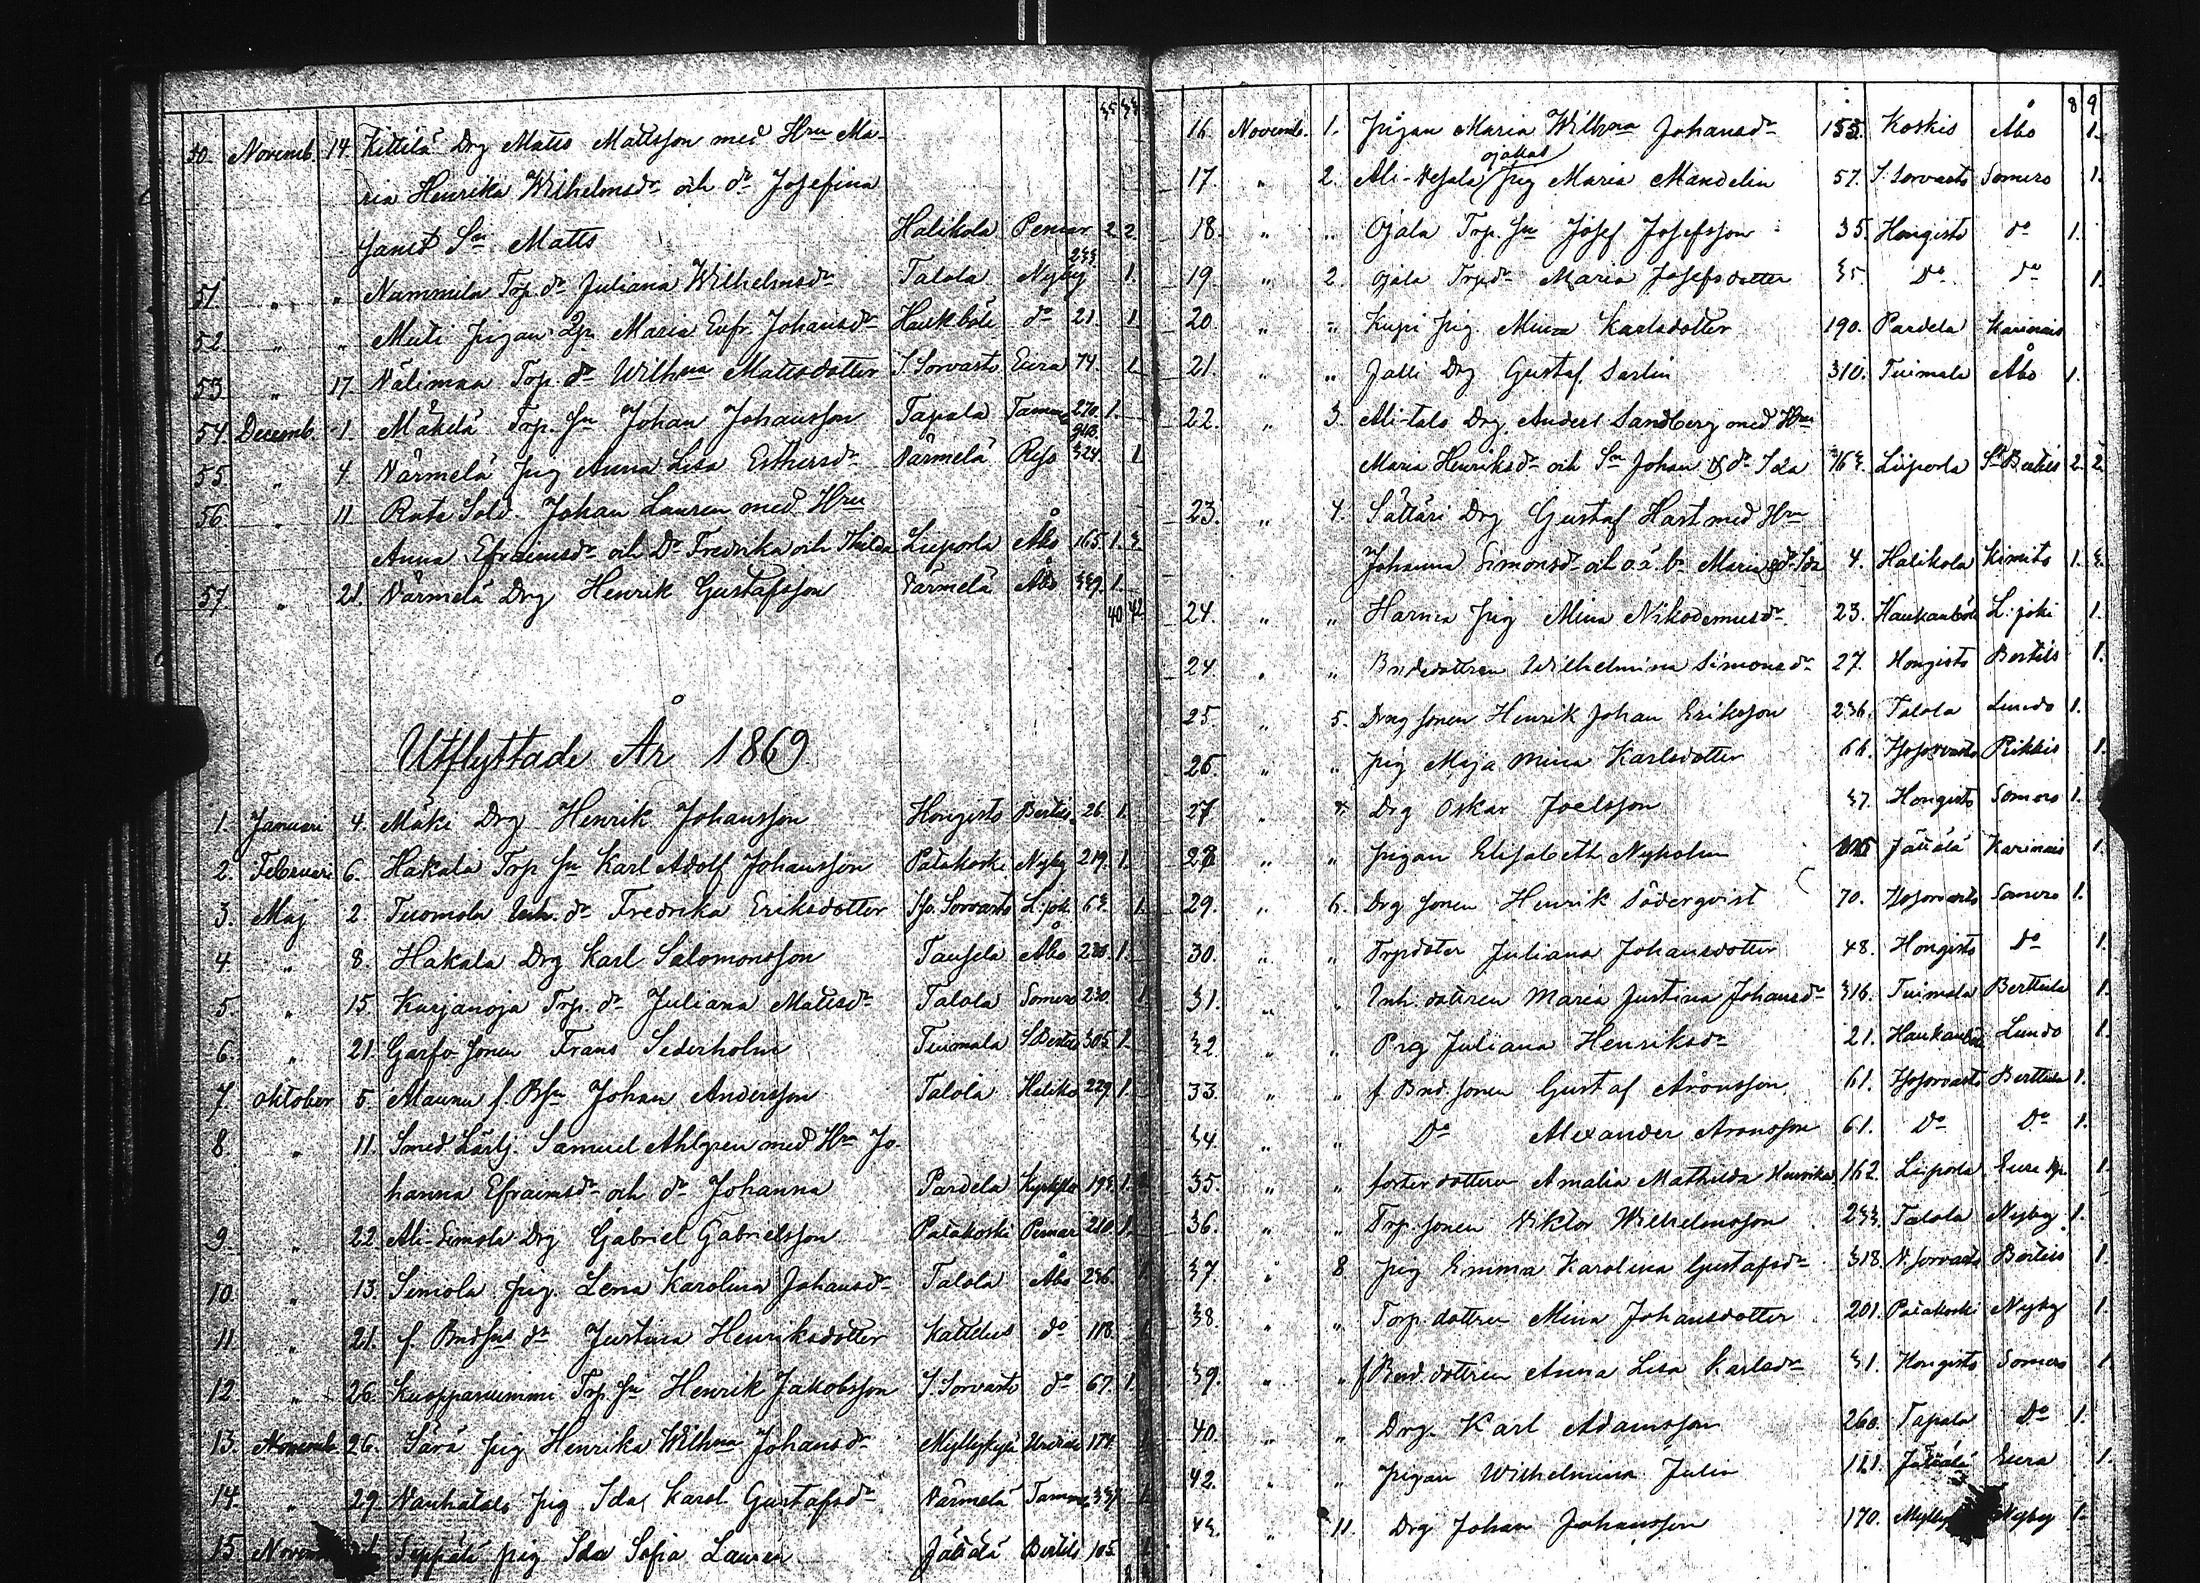 35 33
50. Novemb. 14 Kittilä Drg Matts Mattsson med Hru Ma-
ria Henrika Wilhelmsdr och dr Josefina
samt Sn Matts Halikola Pemar 2 2
51. " " Nummila Trp. dr Juliana Wilhelmsdr Talola Nyby 233 1.
52. " " Muti pigan Maria Eufr. Johansdr Haukböle do 21. 1.
53. " 17. Nälimaa Trp. dr Wilhna Mattsdotter S. Sorvasto Eura 74. 1.
54. Decemb. 1. Mäkelä Trp. Sn Johan Johansson Tapala Tamm 270. 1.
55. " 4. Värmelä pig Anna Lisa Esthersdr Värmelä Reso 324 1
56. " 11 Rote Sold. Johan Lauren med Hru
Anna Efraimsdr och Dr Fredrika och Thilda Liipola Åbo 165 1. 3.
57. " 21. Värmelä Drg Henrik Gustafsson Värmelä Åbo 339. 1.
40 42
Utflyttade År 1869.
1. Januari 4. Mäki Drg Henrik Johansson Hongisto Bertils 26 1.
2. Februari 6. Hakala Trp Sn Karl Adolf Johansson Patakoski Nyby 219. 1.
3. Maj 2. Tuomola Inh. dr Fredrika Eriksdotter Is. Sorvasto L: joki 63. 1.
4. " 8. Hakala Drg Karl Salomonsson Tausela Åbo 280. 1.
5 " 15. Karjanoja Trp. dr Juliana Mattsdr Talola Somero 230. 1
6. " 21. Garfv. sonen Frans Sederholm Tuimala S Bertils 305. 1.
7. Oktober 5. Maunu f. B Sn Johan Andersson Talola Haliko 229. 1.
8. " 11. Smed Lärlj. Samuel Ahlgren med Hru Jo-
hanna Efraimsdr och dr Johanna Pardela Kyrkslt 193. 1.
9. " 22 Ali-Simola Drg Gabriel Gabrielsson Patakoski Pemar 210. 1.
10 " 13. Simola pig. Lena Karolina Johansdr Talola Åbo 236. 1.
11 " 21. f. Bndsns dr Justina Henriksdotter Kattelus do 118. 1
12. " 26. Kuoppanummi Trp. Sn Henrik Jakobsson S. Sorvasto do 67. 1.
13. Novemb. 26. Särä pig Henrika Wilhna Johansdr Myllykylä Urdiala 174. 1
14. " 29. Vanhatalo pig Ida Karol. Gustafsdr Värmelä Tamm 337 1.
15. Novem Seppälä pig Ida Sofia Lauren Jätälä Bertils 105. 1
8 9
16. Novemb. 1. Pigan Maria Wilhna Johansdr 155. Koskis Åbo 1.
ojakas
17. " 2. Ali-Vesala pig Maria Mandelin 57. S. Sorvasto Somero 1.
18. " " Ojala Trp. Sn Josef Josefsson 35. Hongisto do 1.
19. " 2. Ojala Trp dr Maria Josefsdotter 35. Do do 1.
20. " " Kupi pig Mina Karlsdotter 190. Pardela Karinais
21. " " Jalli Drg Gustaf Sarlin 310. Tuimala Åbo 1.
22. " 3. Ali-talo Drg. Anders Sandberg med Hru
Maria Henriksdr och Sn Johan & dr Ida 163. Liipola St Bertils 2. 2.
23. " 4. Sättäri Drg Gustaf Hast med Hru
Johanna Simonsdr och o.ä. br Maria & dr Ida 4. Halikola Kimito 1. 3.
24. " " Harma pig Mina Nikodemusdr 23. Haukanböle L: joki 1.
24. " " Bndedottren Wilhelmina Simonsdr 27. Hongisto Bertils 1.
25. " 5. Drng sonen Henrik Johan Eriksson 236. Talola Lundo 1.
26. " " Pig Maja Mina Karlsdotter 66. Isosorvasto Pikkis 1.
27 " " Drg Oskar Joelsson 37. Hongisto Somero 1.
28. " " Pigan Elisabeth Nyholm Jätälä Karinais 1.
29. " 6. Drg sonen Henrik Söderqvist 70. Isosorvasto Somero 1.
30. " " Trpdoter Juliana Johansdotter 48. Hongisto Do 1.
31. " " Inh. dottren Maria Justina Johansdr 316. Tuimala Berttula 1.
32. " " Prg Juliana Henriksdr 21. Haukanböle Lundo 1.
33. " " f Bnd. sonen Gustaf Aronsson 61. Isosorvasto Berttula 1.
34. " " Do Alexander Aronsson 61. Do Do 1.
35. " " foster dottren Amalia Mathilda Henriksd. 162. Liipola Eura kp 1.
36. " " Trp. sonen Viktor Wilhelmsson 233. Talola Nyby 1.
37. " 8. Pig Emma Karolina Gustafsdr 318. N. Sorvasto Bertils 1.
38. " " Torp dottren Mina Johansdotter 201. Patakoski Nyby 1.
39. " " f Bnd. dottren Anna Lisa Karlsdr 31. Hongisto Somero 1.
40. " " Drg. Karl Adamsson 260. Tapala Do 1.
42. " " Pigan Wilhelmina Julin 161. Jätälä Eura 1.
43. " 11. Drg Johan Johansson 170. Mylly Nyby 1.